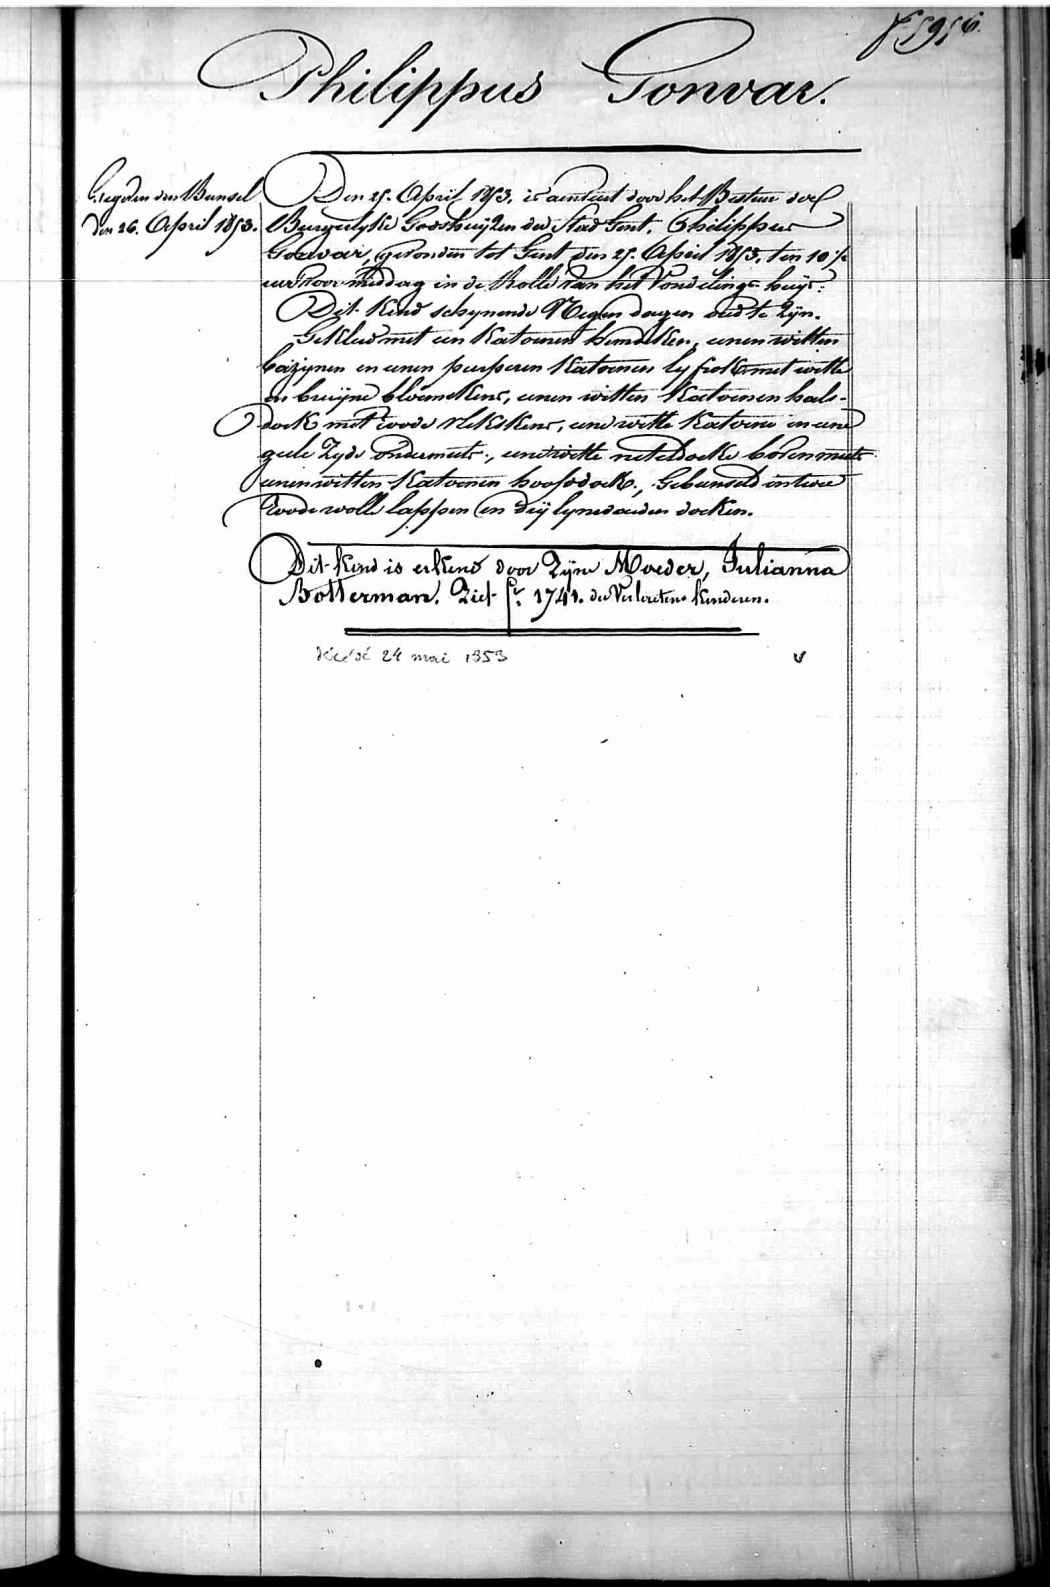 f 5956
Philippus Gonvar.
Gegeven den Bunsel
den 26. April 1853.
Den 25. April 1853. is aenveert door het Bestuer der
Burgerlyke Godshuijzen der Stad Gent, Philippus
Gonvar, gevonden tot Gent den 25. April 1853. ten 10 ½
ure voormiddag in de Rolle van het Vondelings huijs:
Dit Kind schynende Negen dagen oud te Zijn.
Gekleed met een Katoenen hemdeken, eenen witten
bazijnen en eenen purperen Katoenen lyfrok met witte
en bruijne bloemekens, eenen witten Katoenen hals-
doek met roode vlekskens, eene witte Katoene en eene
geele Zyde ondermuts, eene witte neteldoeke bovenmuts
eenen witten Katoenen hoofddoek, Gebunseld in twee
roode wolle lappen en drij lynwaeden doeken.
Dit Kind is erkend door Zijne Moeder, Julianna
Botterman. Ziet f° 1741. der Verlaetene Kinderen.
décédé 24 mai 1853 v